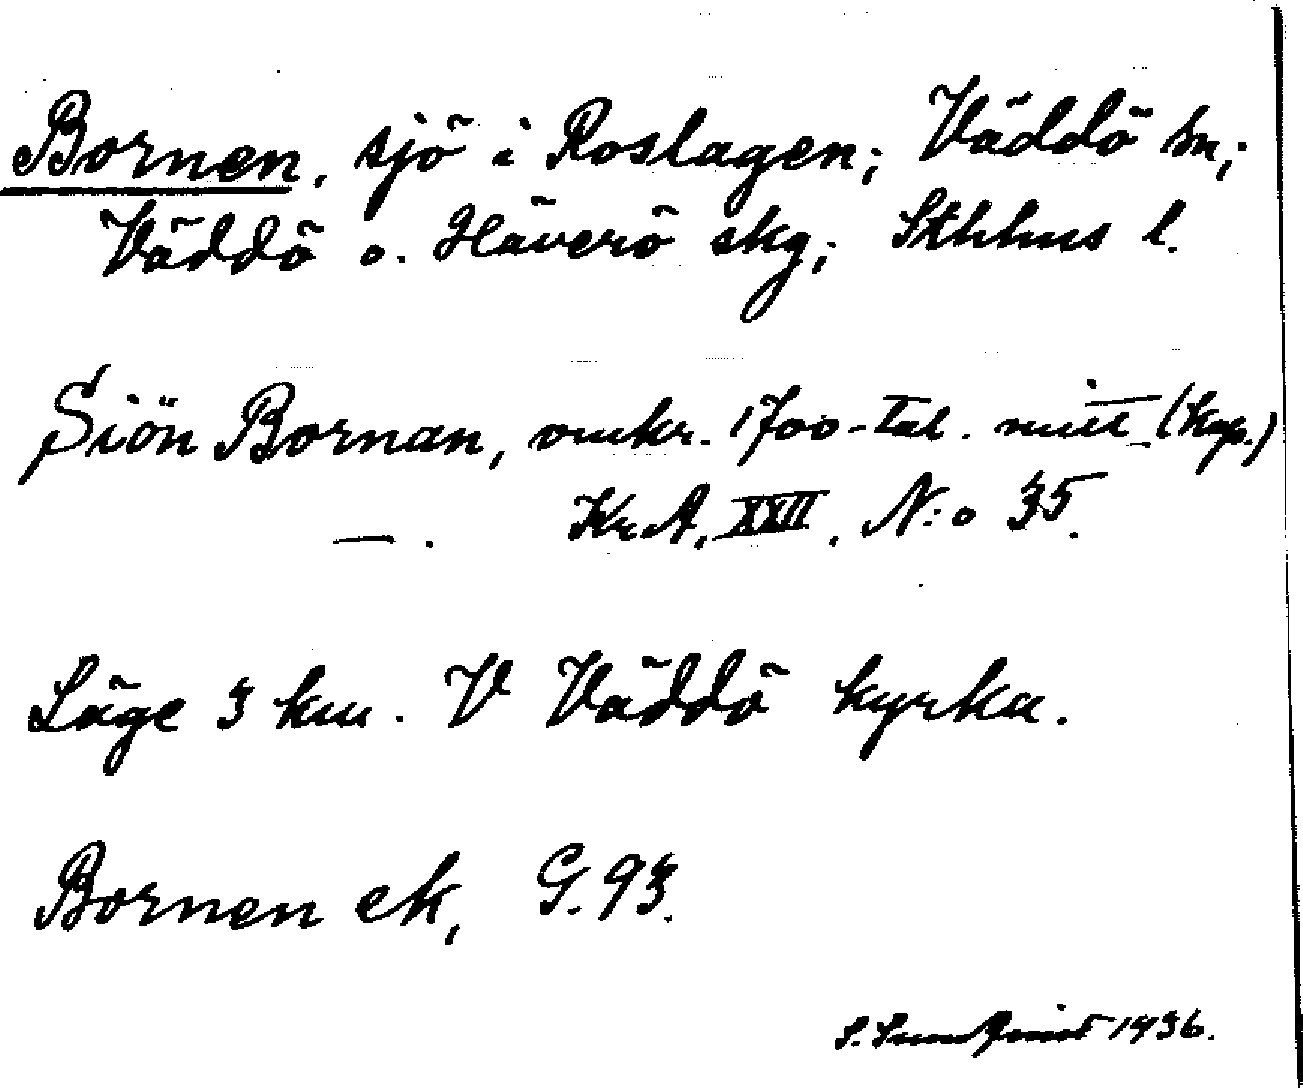 Bornen, sjö i Roslagen; Väddö sn;
Väddö o. Häverö skg; Sthlms l.
Siön Bornan, omkr. 1700-tal. mitt (kop.)
— . Kr.A, XXII, N:o 35.
Läge 3 km. V Väddö kyrka.
Bornen ek, G. 93.
S. Sundqvist 1936.